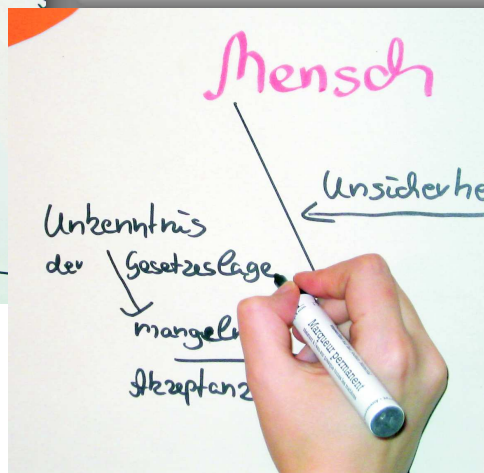 Mensch
Unsicherhe
Unkenntnis
der Gesetzeslage
mangeln
Akzeptanz
Marqueur permanent